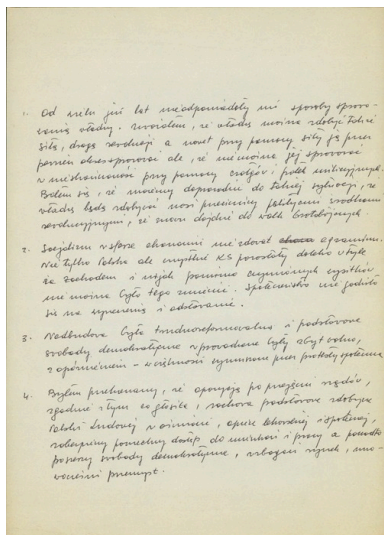 1. Od wielu już lat nie odpowiadały mi sposoby sprawo-
wania władzy. Uważałem, że władzę można zdobyć także
siłą, drogą rewolucji a nawet przy pomocy siły ją przez
pewien okres sprawować ale, że nie można jej sprawować
w nieskończoność przy pomocy czołgów i pałek milicyjnych.
Bałem się, że możemy doprowadzić do takiej sytuacji, że
władzę będą zdobywać nasi przeciwnicy polityczni środkami
rewolucyjnymi, że może dojść do walk bratobójczych.
2. Socjalizm w sferze ekonomii nie zdawał egzaminu.
Nie tylko Polska ale wszystkie KS pozostały daleko w tyle
za zachodem i mimo czynionych wysiłków
nie można było tego zmienić. Społeczeństwo nie godziło
się na wyrzeczenia i odstawanie.
3. Nadbudowa była trudnoreformowalna i podstawowe
swobody demokratyczne wprowadzane były zbyt wolno,
z opóźnieniem – w większości wymuszone przez protesty społeczne
4. Byłem przekonany, że opozycja po przejęciu rządów,
zgodnie z tym co głosiła, zachowa podstawowe zdobycze
Polski Ludowej w oświacie, opiece lekarskiej i społecznej,
zabezpieczy powszechny dostęp do mieszkań i pracy a ponadto
poszerzy swobody demokratyczne, wzbogaci rynek, uno-
wocześni przemysł.